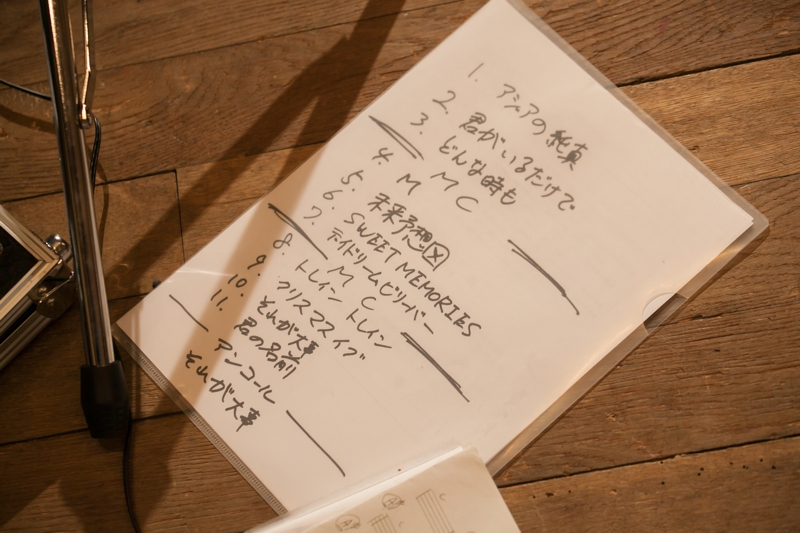 1. アジアの純真
2. 君がいるだけで
3. どんな時も
MC
4. M
5. 未来予想図
6. SWEET MEMORIES
7. デイドリームビリーバー
MC
8. トレイン トレイン
9. クリスマスイブ
10. それが大事
11. 君の名前
アンコール
それが大事